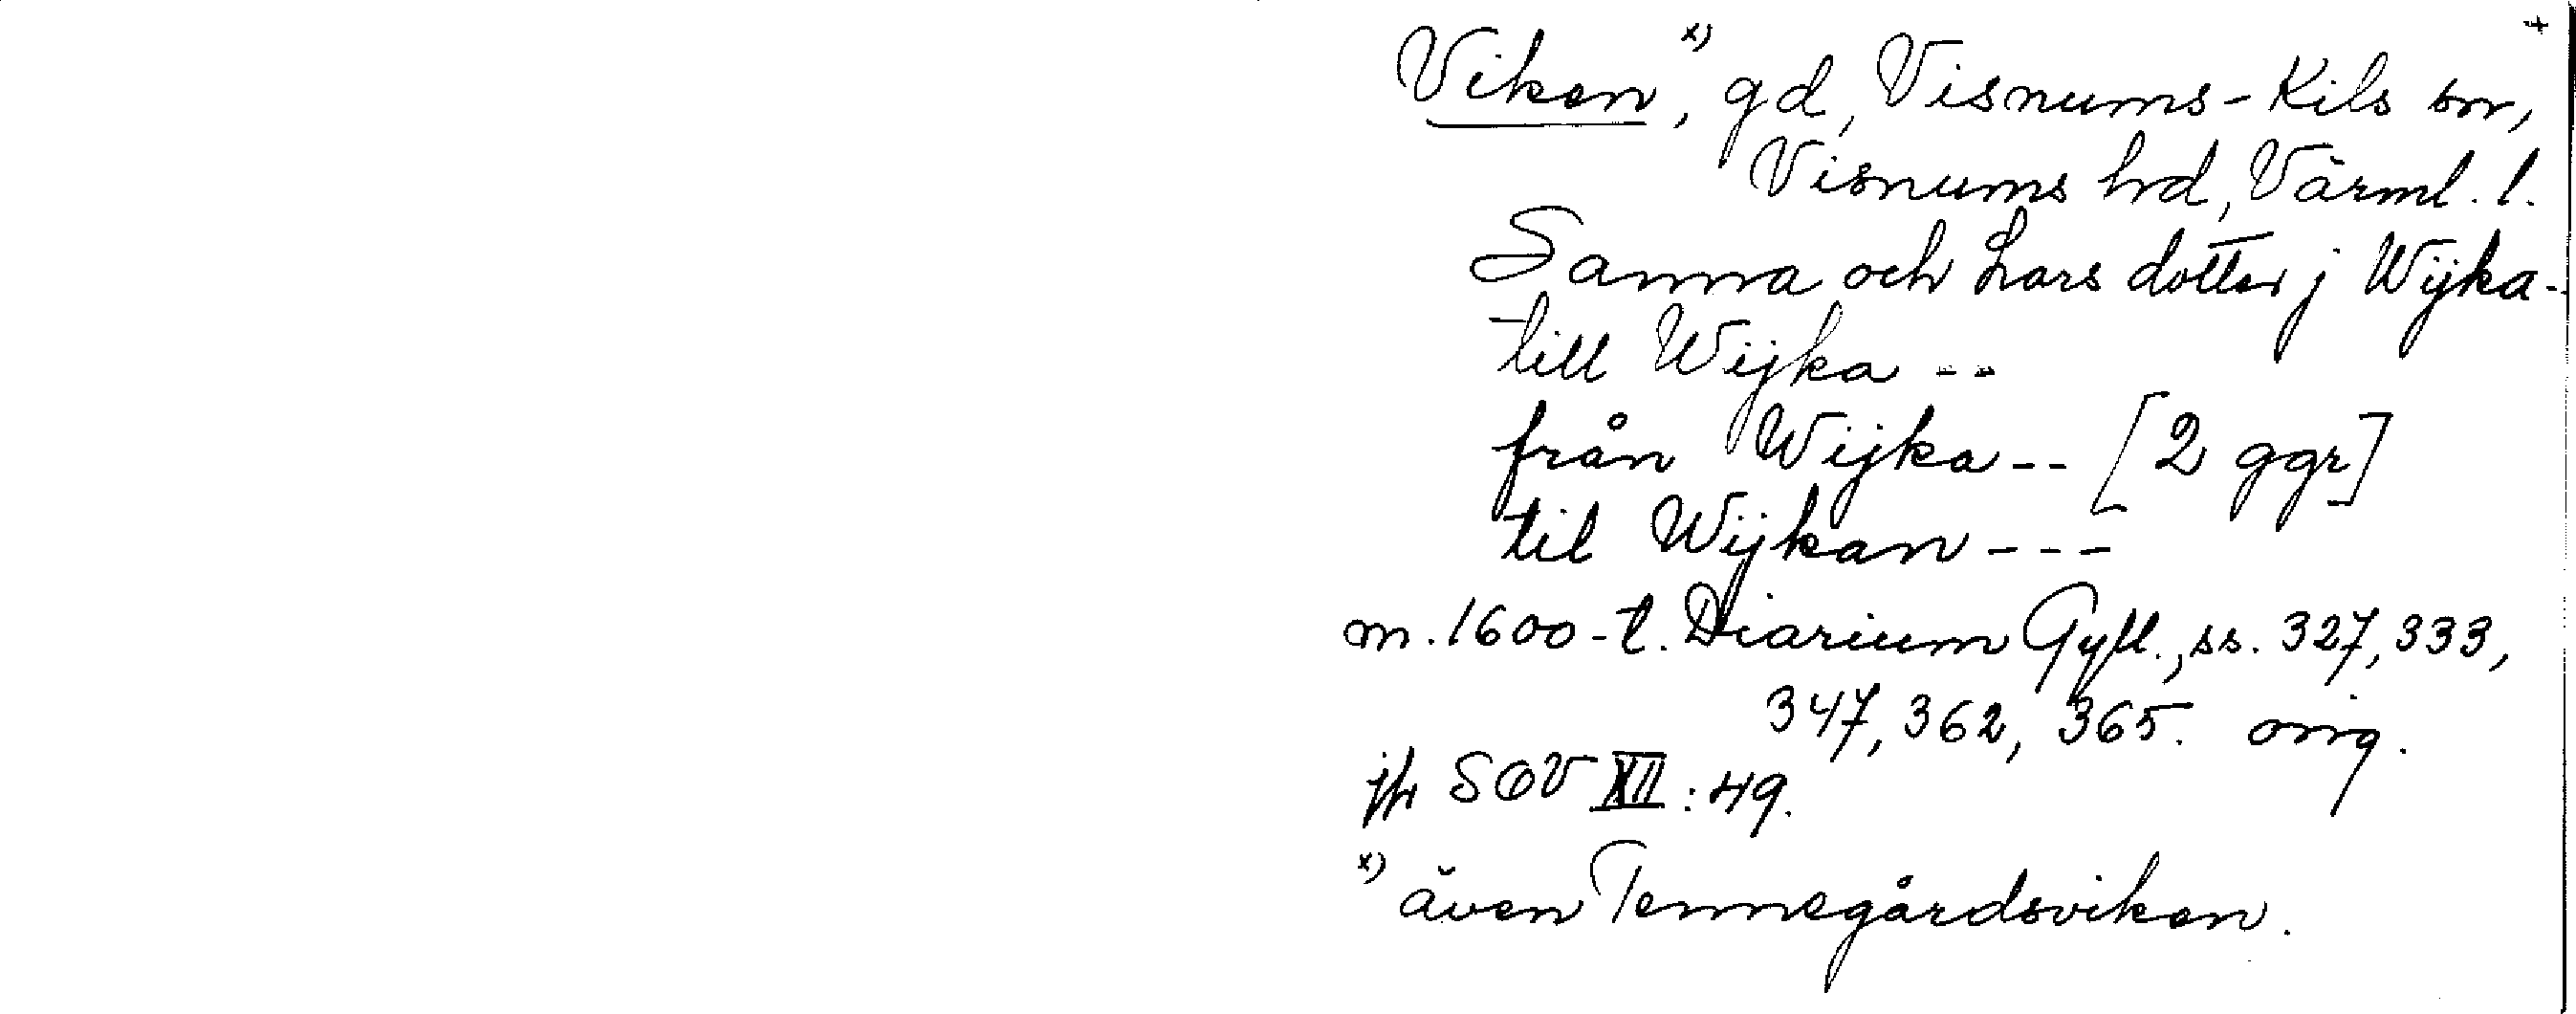 +
Viken x), gd, Visnums-Kils sn,
Visnums hd, Värml. l.
Sanna och Lars dotter j Wijka--
till Wijka --
från Wijka -- [2 ggr]
til Wijkan ---
m. 1600-t. Diarium Gyll., ss. 327, 333,
347, 362, 365. orig.
jfr SOV XII: 49.
x) även Tennegårdsviken.